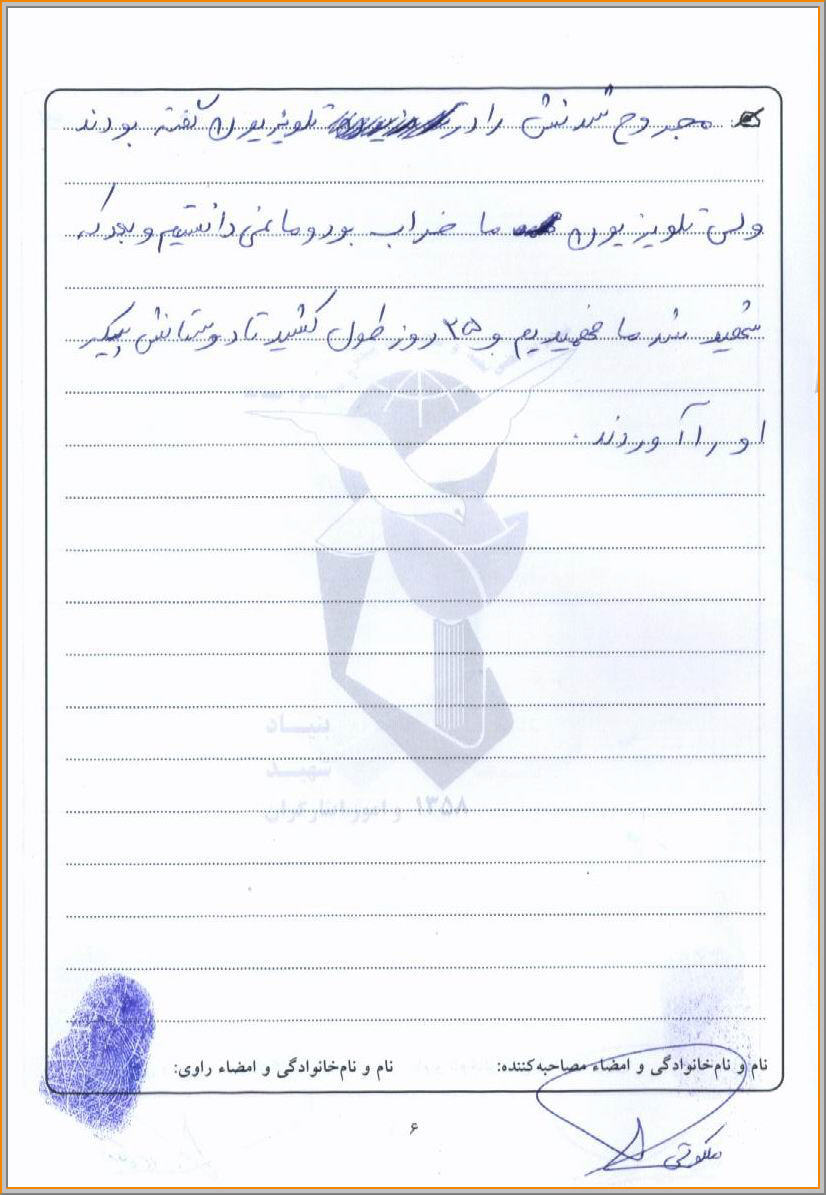 مجروح شدنش را در تلویزیون گفته بودند
ولی تلویزیون ما خراب بود و ما نمی دانستیم و بعد که
شهید شد ما فهمیدیم و ۳۵ روز طول کشید تا دوستانش پیکر
او را آوردند.
بنیاد
شهید
و امور ایثارگران ۱۳۵۸
نام و نام‌خانوادگی و امضاء مصاحبه‌کننده:
نام و نام‌خانوادگی و امضاء راوی:
۶